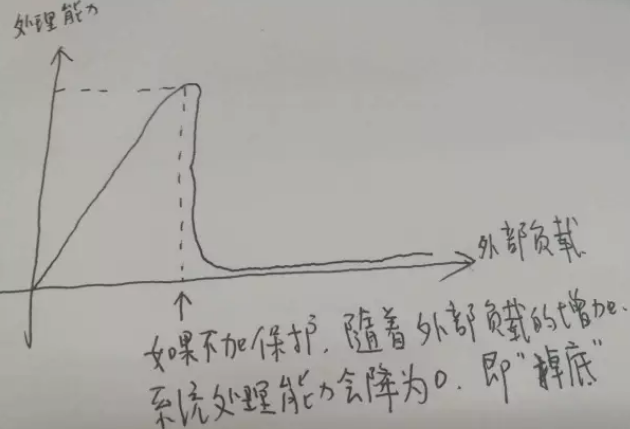 处理能力
外部负载
如果不加保护,随着外部负载的增加.
系统处理能力会降为0.即“掉底”